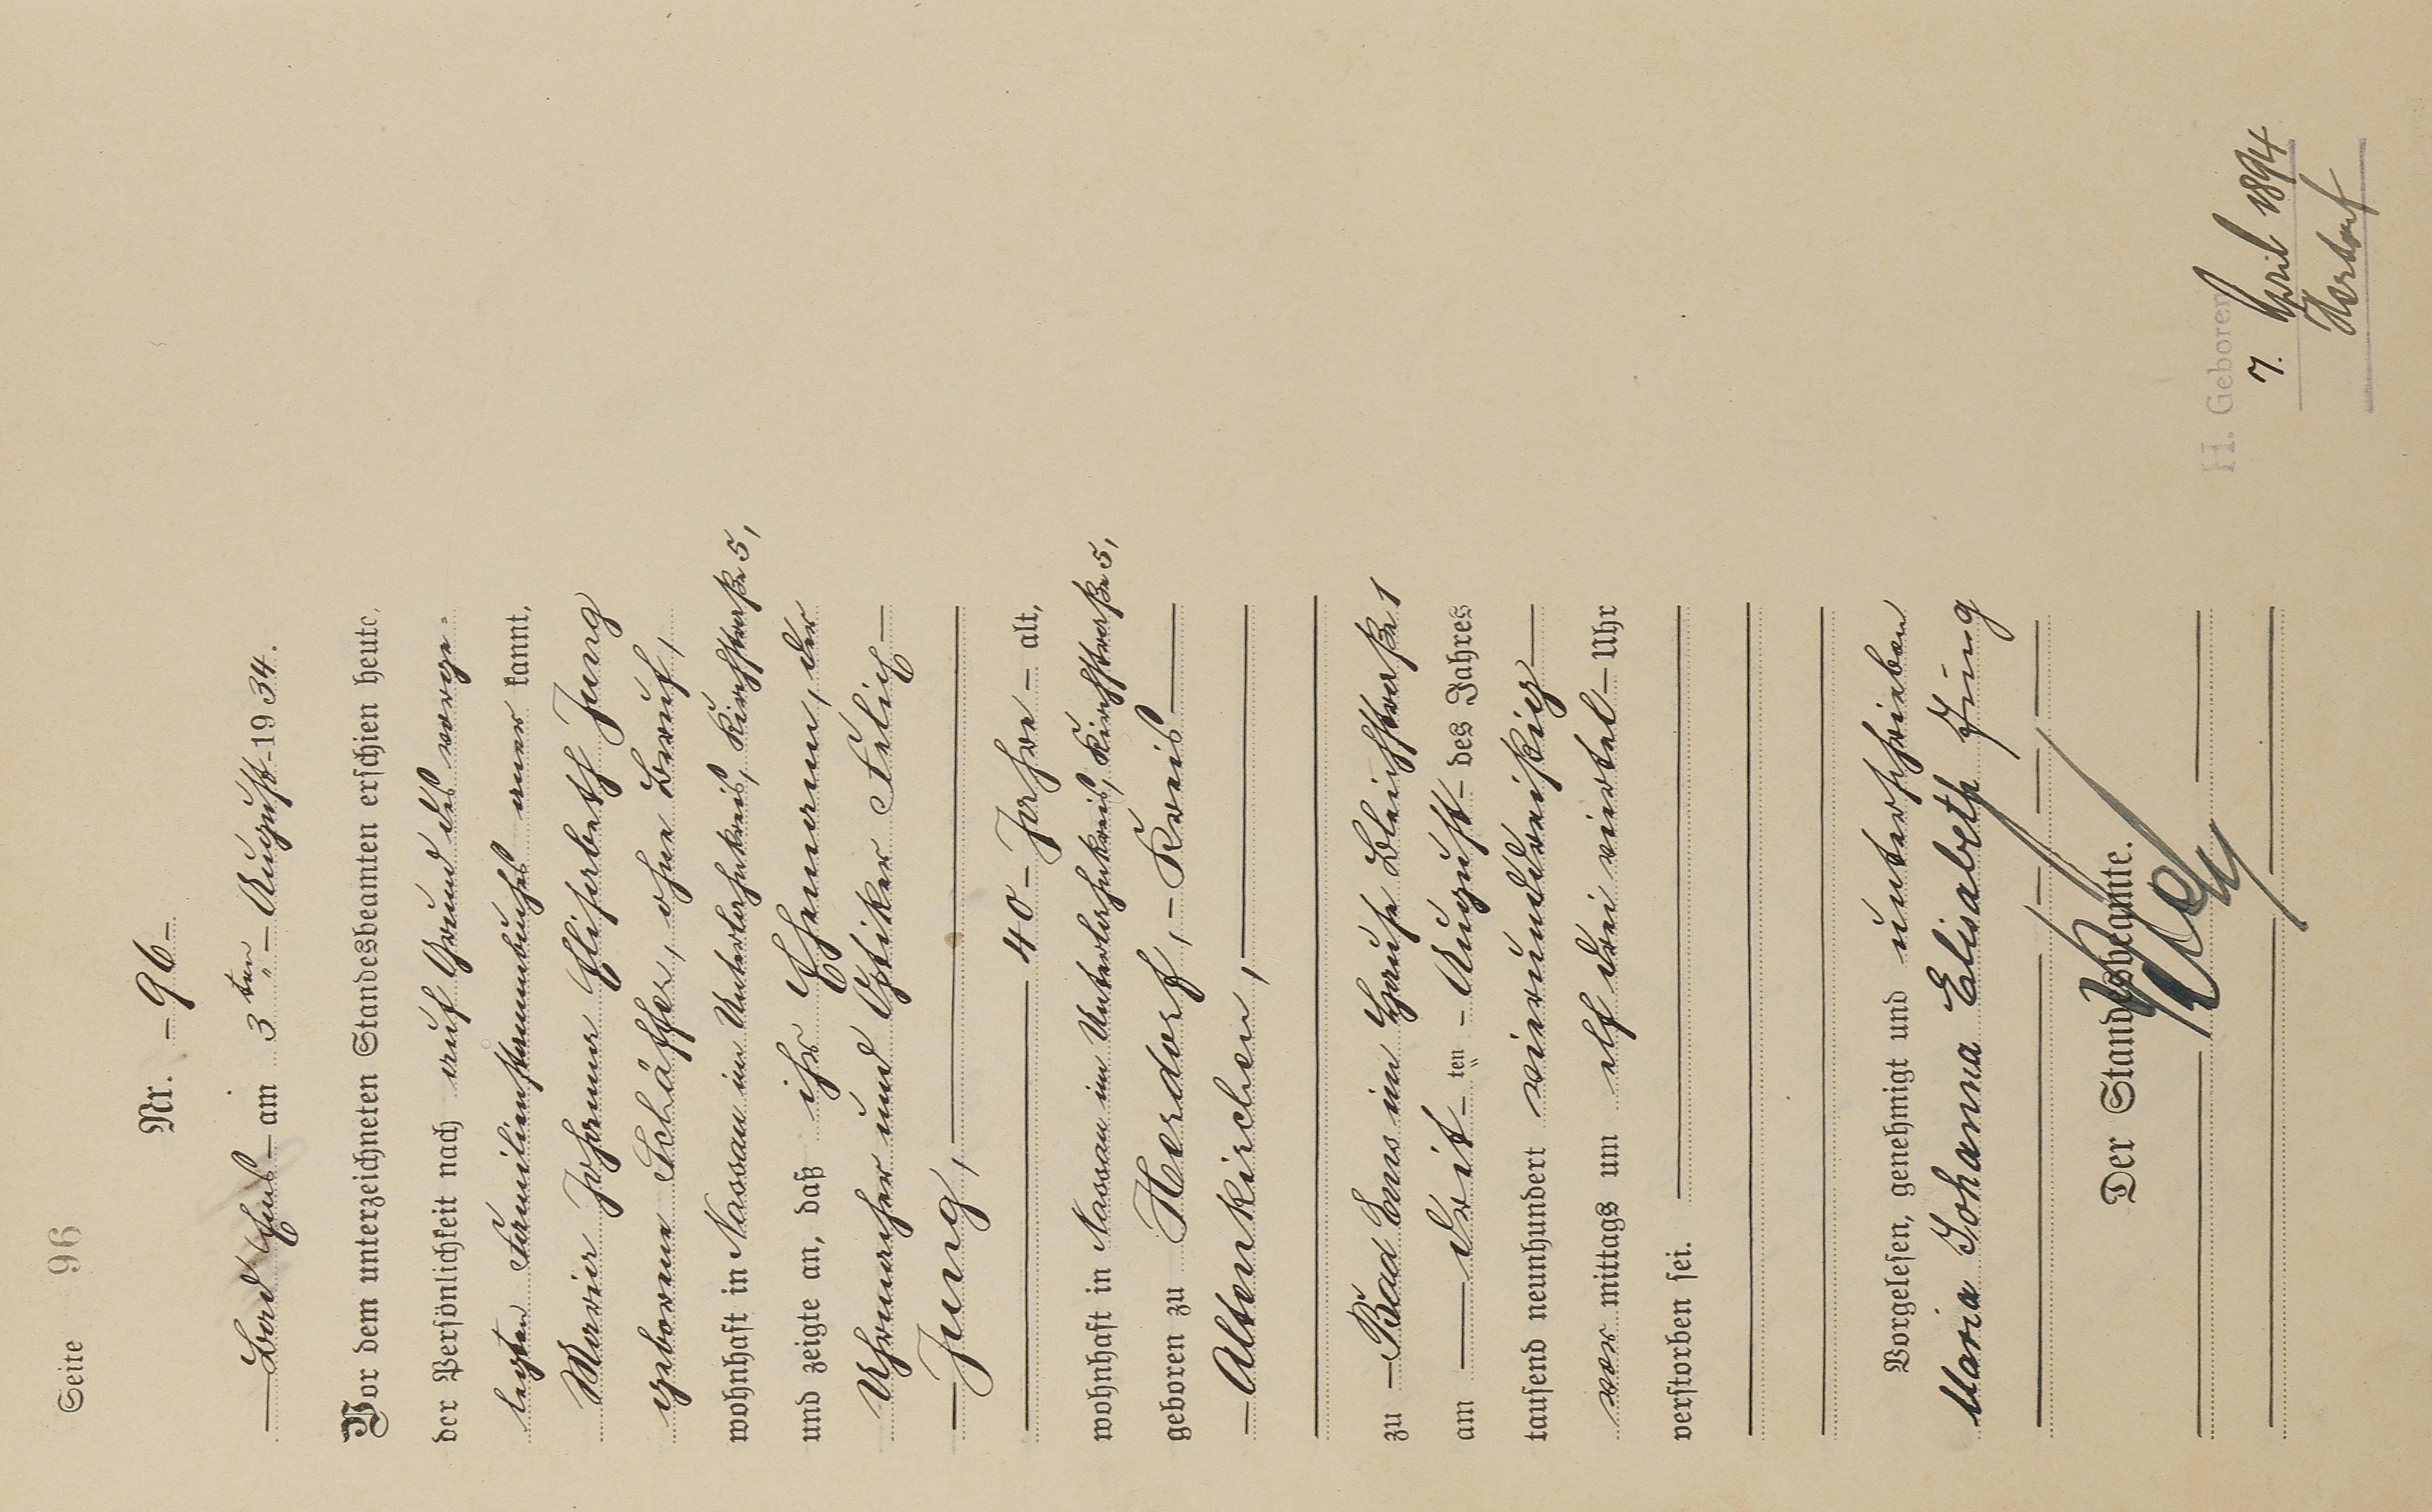 Seite 96
Nr. – 96 –
— Bad Ems – am 3ten „ – August – 1934.
Vor dem unterzeichneten Standesbeamten erschien heute,
der Persönlichkeit nach auf Grund des vorge-
legten Familienstammbuches aner kannt,
Maria Johanna Elisabeth Jung
geborene Schäffer, ohne Beruf,
wohnhaft in Nassau im Unterlahnkreis, Kirchstraße 5,
und zeigte an, daß ihr Ehemann, der
Uhrmacher und Optiker
— Jung, —
— 40 – Jahre – alt,
wohnhaft in Nassau im Unterlahnkreis, Kirchstraße 5,
geboren zu Herdorf, – Kreis —
– Altenkirchen, —
zu – Bad Ems im Hause Bleichstraße 1
am — drit – ten – August – des Jahres
tausend neunhundert vierunddreißig —
vor mittags um elf drei viertel – Uhr
verstorben sei. —
Vorgelesen, genehmigt und unterschrieben
Maria Johanna Elisabeth Jung
Der Standesbeamte.
H. Geboren
7. April 1894
Herdorf